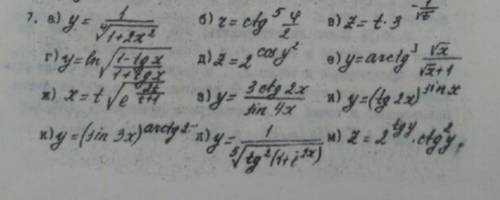 7. а) y = 1/∜(1+2x²) б) r = ctg⁵ φ/2 в) z = t·3^(-1/√t)
г) y = ln √((1-tg x)/(1+tg x)) д) z = 2^(cos y²) е) y = arctg³ √x/(√x+1)
ж) x = t√e з) y = 3ctg 2x/sin 4x и) y = (tg 2x)^(sin x)
к) y = (sin 3x)^arctg л) y = 1/⁵√(tg²(1+ м) z = 2^(tg y)·ctg²y,